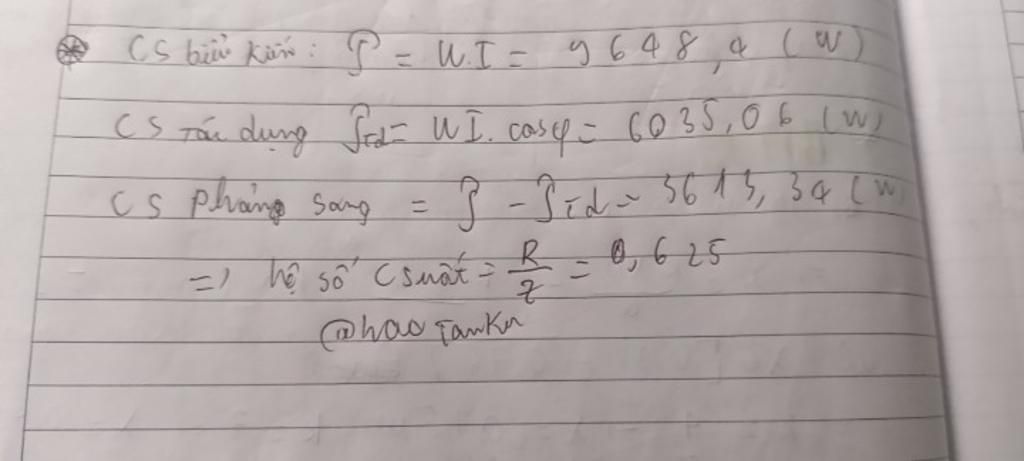 CS biểu kiến: P = U.I = 9648,4 (W)
CS Tác dụng Ptd = UI. cosφ = 6035,06 (W)
CS phảng sang = P - Ptd = 3613,34 (W)
=> hệ số Csuất = R/z = 0,625
@haoTamKu